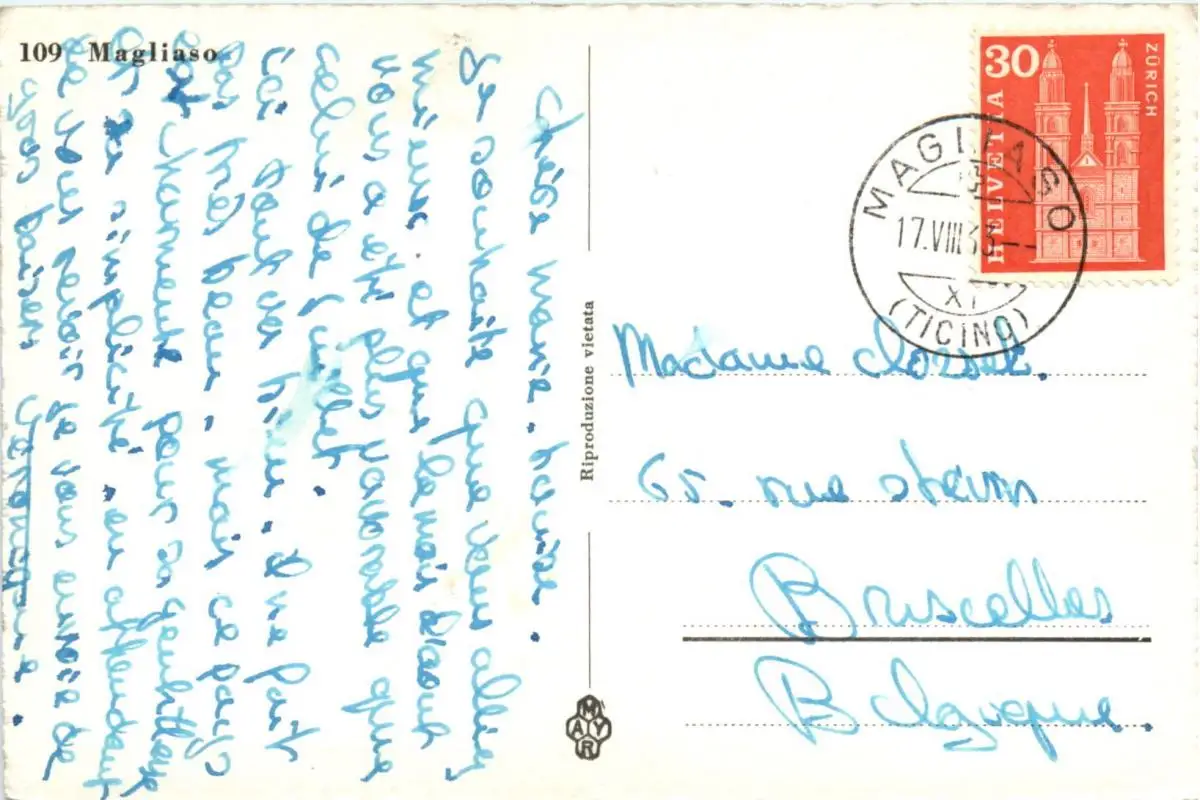 109 Magliaso
Chère marie-louise.
Je souhaite que vous alliez
mieux. et que le mois d'aout
vous a été plus favorable que
celui de Juillet.
ici tout va bien. Il ne fait
pas très beau. mais ce pays
est charmant pour sa gentillesse
et sa simplicité. en attendant
de vous revoir je vous envoie de
gros baisers Veronique.
Riproduzione vietata
MAYR
30
HELVETIA
ZÜRICH
MAGLIASO
17.VIII.63--
XI
(TICINO)
Madame
65. rue
Bruscelles
Belgique.